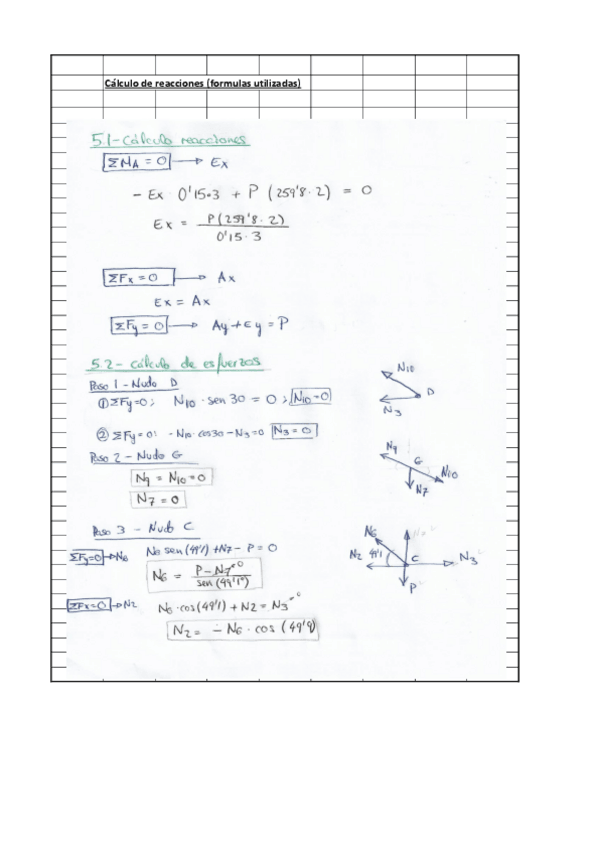 Cálculo de reacciones (formulas utilizadas)
5.1- Cálculo reacciones
ΣMA = 0 → Ex
- Ex · 0'15·3 + P (259'8 · 2) = 0
Ex = P(259'8 · 2) / 0'15 · 3
ΣFx = 0 → Ax
Ex = Ax
ΣFy = 0 → Ay + Ey = P
5.2- Cálculo de esfuerzos
Paso 1 - Nudo D
① ΣFy=0; N10 · sen 30 = 0 ; N10=0
② ΣFy=0: -N10·cos30 - N3=0 N3 = 0
N10
D
N3
Paso 2 - Nudo G
N9 = N10 = 0
N7 = 0
N9
G
N10
N7
Paso 3 - Nudo C
ΣFy=0 → N6 N6 sen(49'1) + N7 - P = 0
N6 = P - N7=0 / sen(49'1º)
ΣFx=0 → N2 N6·cos(49'1) + N2 = N3=0
N2 = - N6 · cos (49'1)
N6
N2 49'1 C N3
P